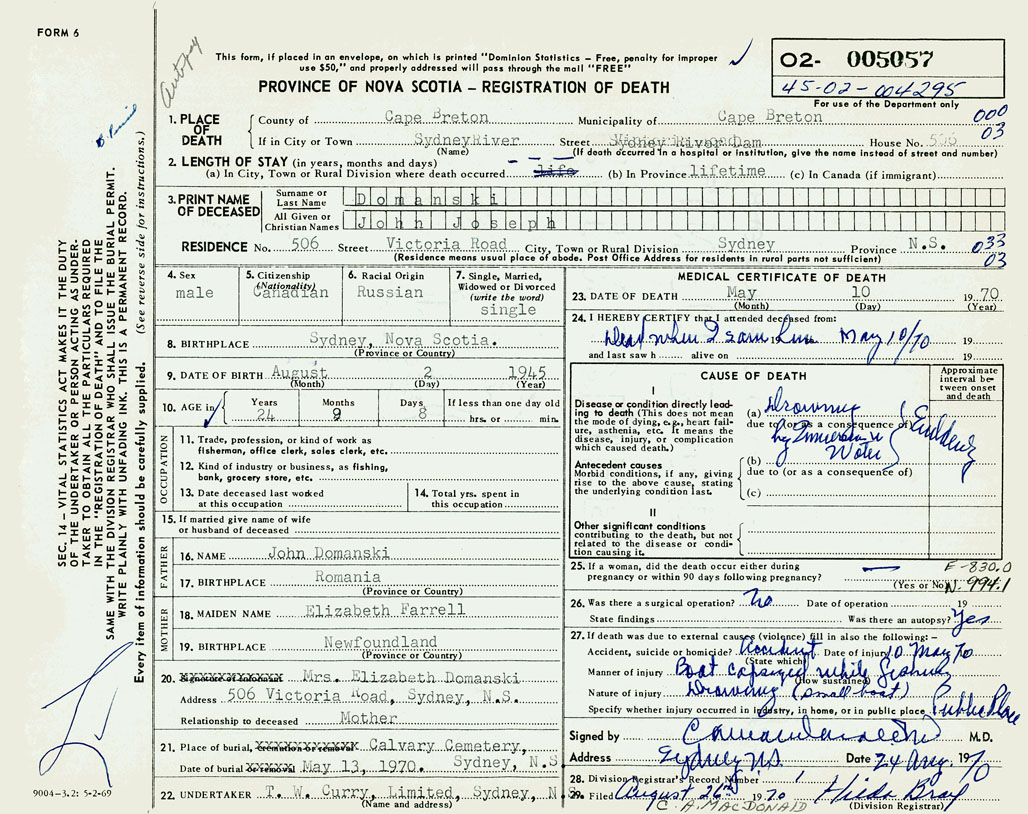 FORM 6
Autopsy
This form, if placed in an envelope, on which is printed "Dominion Statistics - Free, penalty for improper
use $50," and properly addressed will pass through the mail "FREE"
O2- 005057
45-02-004295
For use of the Department only
PROVINCE OF NOVA SCOTIA - REGISTRATION OF DEATH
1. PLACE OF DEATH
County of Cape Breton Municipality of Cape Breton 000
If in City or Town SydneyRiver Street Sydney River Dam House No. 506 03
(Name) (If death occurred in a hospital or institution, give the name instead of street and number)
2. LENGTH OF STAY (in years, months and days)
(a) In City, Town or Rural Division where death occurred life (b) In Province lifetime (c) In Canada (if immigrant)
3. PRINT NAME OF DECEASED
Surname or Last Name Domanski
All Given or Christian Names John Joseph
RESIDENCE No. 506 Street Victoria Road City, Town or Rural Division Sydney Province N.S. 033
(Residence means usual place of abode. Post Office Address for residents in rural parts not sufficient) 03
4. Sex male
5. Citizenship (Nationality) Canadian
6. Racial Origin Russian
7. Single, Married, Widowed or Divorced (write the word) single
8. BIRTHPLACE Sydney, Nova Scotia.
(Province or Country)
9. DATE OF BIRTH August 2 1945
(Month) (Day) (Year)
10. AGE in Years Months Days If less than one day old
24 9 8 hrs. or min.
OCCUPATION
11. Trade, profession, or kind of work as
fisherman, office clerk, sales clerk, etc.
12. Kind of industry or business, as fishing,
bank, grocery store, etc.
13. Date deceased last worked
at this occupation
14. Total yrs. spent in
this occupation
15. If married give name of wife
or husband of deceased
FATHER
16. NAME John Domanski
17. BIRTHPLACE Romania
(Province or Country)
MOTHER
18. MAIDEN NAME Elizabeth Farrell
19. BIRTHPLACE Newfoundland
(Province or Country)
20. Signature of informant Mrs. Elizabeth Domanski
Address 506 Victoria Road, Sydney, N.S.
Relationship to deceased Mother
21. Place of burial, cremation or removal Calvary Cemetery,
Date of burial or removal May 13, 1970. Sydney, N.S.
22. UNDERTAKER T. W. Curry, Limited, Sydney, N.S.
(Name and address)
MEDICAL CERTIFICATE OF DEATH
23. DATE OF DEATH May 10 1970
(Month) (Day) (Year)
24. I HEREBY CERTIFY that I attended deceased from:
Dead when I saw him May 10/70 19
and last saw h alive on 19
CAUSE OF DEATH
Approximate interval between onset and death
I
Disease or condition directly leading to death (This does not mean the mode of dying, e.g., heart failure, asthenia, etc. It means the disease, injury, or complication which caused death.)
(a) Drowning
due to (or as a consequence of)
by Immersion in
Water
Suddenly
Antecedent causes
Morbid conditions, if any, giving rise to the above cause, stating the underlying condition last.
(b)
due to (or as a consequence of)
(c)
II
Other significant conditions
contributing to the death, but not related to the disease or condition causing it.
25. If a woman, did the death occur either during
pregnancy or within 90 days following pregnancy?
(Yes or No)
E-830.0
N. 994.1
26. Was there a surgical operation? No Date of operation 19
State findings Was there an autopsy? Yes
27. If death was due to external causes (violence) fill in also the following:-
Accident, suicide or homicide? Accident Date of injury 10 May 70
(State which)
Manner of injury Boat capsized while fishing
(How sustained)
Nature of injury Drowning (small boat)
Specify whether injury occurred in industry, in home, or in public place Public Place
Signed by M.D.
Address Sydney N.S. Date 24 Aug 1970
28. Division Registrar's Record Number
29. Filed August 26th 1970 Hilda Bray
C. A. MACDONALD (Division Registrar)
SEC. 14 - VITAL STATISTICS ACT MAKES IT THE DUTY
OF THE UNDERTAKER OR PERSON ACTING AS UNDER-
TAKER TO OBTAIN ALL THE PARTICULARS REQUIRED
IN THE "REGISTRATION OF DEATH" AND TO FILE THE
SAME WITH THE DIVISION REGISTRAR WHO SHALL ISSUE THE BURIAL PERMIT.
WRITE PLAINLY WITH UNFADING INK. THIS IS A PERMANENT RECORD.
Every item of information should be carefully supplied. (See reverse side for instructions.)
9004-3.2: 5-2-69